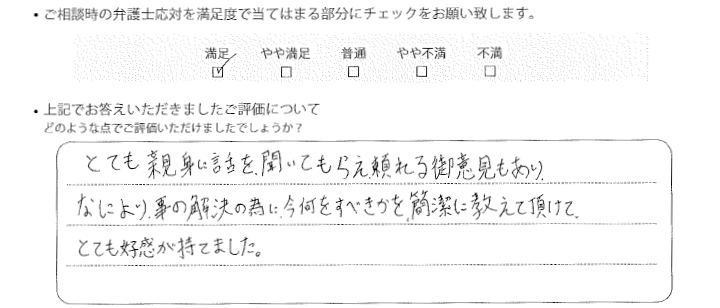 ・ご相談時の弁護士応対を満足度で当てはまる部分にチェックをお願い致します。
満足 やや満足 普通 やや不満 不満
☑ □ □ □ □
・上記でお答えいただきましたご評価について
どのような点でご評価いただけましたでしょうか？
とても親身に話を聞いてもらえ頼れる御意見もあり、
なにより、事の解決の為に、今何をすべきかを、簡潔に教えて頂けて、
とても好感が持てました。